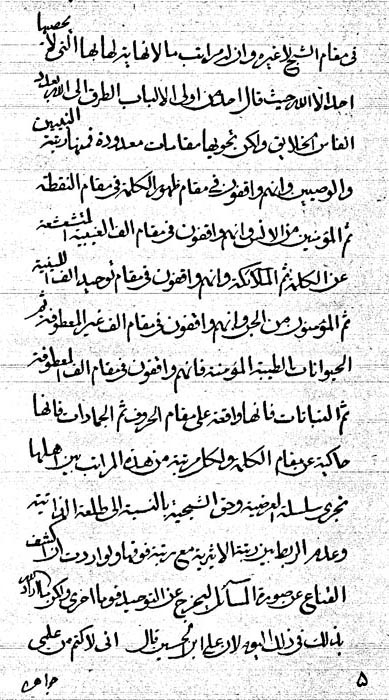 في مقام الشبح لا غيره وان له مراتب ما لا نهاية لها بها التي لا يحصيها
احد الا الله حيث قال احد من اولي الالباب الطرق الى الله بعدد
انفاس الخلايق ولكن تحويها مقامات معدودة فمنها رتبة النبيين
والوصيين وانهم واقفون في مقام ظهور الكلمة في مقام النقطة
ثم المؤمنين من الانس وانهم واقفون في مقام الف الغيبية المتشعشعة
عن الكلمة ثم الملائكة وانهم واقفون في مقام توحيد الف اللينية
ثم المؤمنون من الجن وانهم واقفون في مقام الف غير المعطوفة ثم
الحيوانات الطيبة المؤمنة فانهم واقفون في مقام الف المعطوفة
ثم النباتات فانها واقعة على مقام الحروف ثم الجمادات فانها
حاكية عن مقام الكلمة ولكل رتبة من هذه المراتب بين اهلها
تجري سلسلة العرضية وحق الشبحية بالنسبة الى طلعة الذاتية
وعدم الربط بين رتبة الاثرية مع رتبة فوقها ولو اردت ان اكشف
القناع عن صورة المسائل ليخرج عن التوحيد قوما اخرى ولكن ما اراد الله
بذلك في ذلك اليوم لان علي ابن الحسين قال اني لاكتم من علمي
جواهره
٥